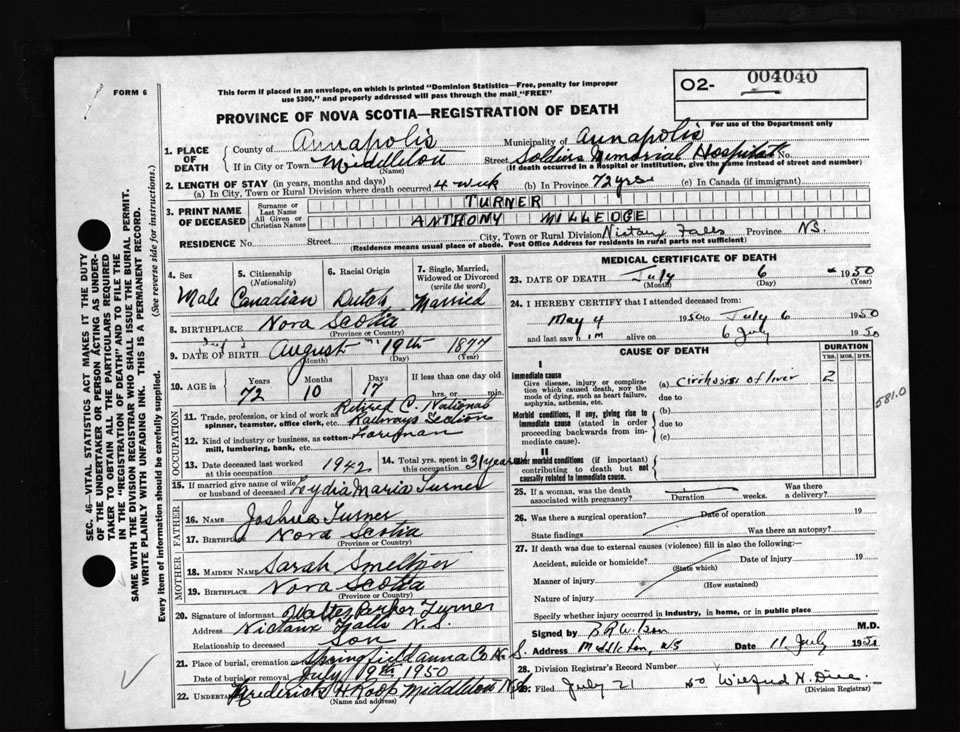 FORM 6
This form if placed in an envelope, on which is printed "Dominion Statistics—Free, penalty for improper
use $300," and properly addressed will pass through the mail "FREE"
02- 004040
For use of the Department only
PROVINCE OF NOVA SCOTIA—REGISTRATION OF DEATH
SEC. 46—VITAL STATISTICS ACT MAKES IT THE DUTY
OF THE UNDERTAKER OR PERSON ACTING AS UNDER-
TAKER TO OBTAIN ALL THE PARTICULARS REQUIRED
IN THE "REGISTRATION OF DEATH" AND TO FILE THE
SAME WITH THE DIVISION REGISTRAR WHO SHALL ISSUE THE BURIAL PERMIT.
WRITE PLAINLY WITH UNFADING INK. THIS IS A PERMANENT RECORD.
Every item of information should be carefully supplied. (See reverse side for instructions.)
1. PLACE OF DEATH
County of Annapolis Municipality of Annapolis
If in City or Town Middleton Street Soldiers Memorial Hospital No.
(Name) (If death occurred in a hospital or institution, give the name instead of street and number)
2. LENGTH OF STAY (in years, months and days)
(a) In City, Town or Rural Division where death occurred 4 week (b) In Province 72 yrs (c) In Canada (if immigrant)
3. PRINT NAME OF DECEASED
Surname or Last Name TURNER
All Given or Christian Names ANTHONY MILLEDGE
RESIDENCE No. Street City, Town or Rural Division Nictaux Falls Province N.S.
(Residence means usual place of abode. Post Office Address for residents in rural parts not sufficient)
4. Sex Male
5. Citizenship (Nationality) Canadian
6. Racial Origin Dutch
7. Single, Married, Widowed or Divorced (write the word) Married
8. BIRTHPLACE Nova Scotia
(Province or Country)
9. DATE OF BIRTH August 19th 1877
(Month) (Day) (Year)
10. AGE in Years 72 Months 10 Days 17 If less than one day old hrs. or min.
OCCUPATION
11. Trade, profession, or kind of work as spinner, teamster, office clerk, etc. Retired C. National Railways Section
12. Kind of industry or business, as cotton-mill, lumbering, bank, etc. Foreman
13. Date deceased last worked at this occupation 1942
14. Total yrs. spent in this occupation 31 years
15. If married give name of wife or husband of deceased Lydia Maria Turner
FATHER
16. NAME Joshua Turner
17. BIRTHPLACE Nova Scotia
(Province or Country)
MOTHER
18. MAIDEN NAME Sarah Smeltzer
19. BIRTHPLACE Nova Scotia
(Province or Country)
20. Signature of informant Walter Parker Turner
Address Nictaux Falls N.S.
Relationship to deceased Son
21. Place of burial, cremation Springfield Anna Co N.S.
Date of burial or removal July 19th, 1950
22. UNDERTAKER Frederick H Roop Middleton N.S.
(Name and address)
MEDICAL CERTIFICATE OF DEATH
23. DATE OF DEATH July 6 1950
(Month) (Day) (Year)
24. I HEREBY CERTIFY that I attended deceased from:
May 4 1950 to July 6 1950
and last saw him on 6 July 1950
CAUSE OF DEATH DURATION
YRS. MOS. DYS.
I
Immediate cause
Give disease, injury or complication which caused death, not the mode of dying, such as heart failure, asphyxia, asthenia, etc.
(a) Cirrhosis of liver 2
due to
581.0
Morbid conditions, if any, giving rise to immediate cause (stated in order proceeding backwards from immediate cause).
(b)
due to
(c)
II
Other morbid conditions (if important) contributing to death but not causally related to immediate cause.
25. If a woman, was the death associated with pregnancy? Duration weeks. Was there a delivery?
26. Was there a surgical operation? Date of operation 19
State findings Was there an autopsy?
27. If death was due to external causes (violence) fill in also the following:—
Accident, suicide or homicide? Date of injury 19
(State which)
Manner of injury
(How sustained)
Nature of injury
Specify whether injury occurred in industry, in home, or in public place
Signed by M.D.
Address Middleton, NS Date 11 July 1950
28. Division Registrar's Record Number
29. Filed July 21 50
(Division Registrar)